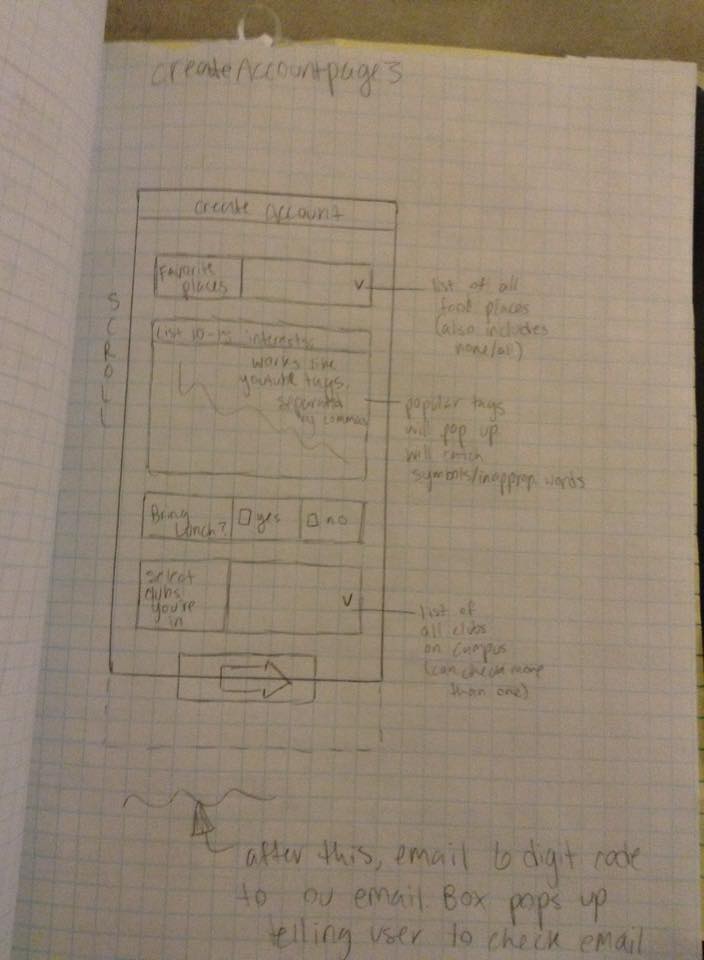 createAccountpage3
create Account
Favorite
places
V
list of all
food places
(also includes
none/all)
SCROLL
List 10-15 interests:
works like
youtube tags,
separated
by commas
popular tags
will pop up
will catch
symbols/inapprop words
Bring
Lunch?
yes
no
select
clubs
you're
in
V
list of
all clubs
on campus
(can check more
than one)
after this, email 6 digit code
to OU email. Box pops up
telling user to check email